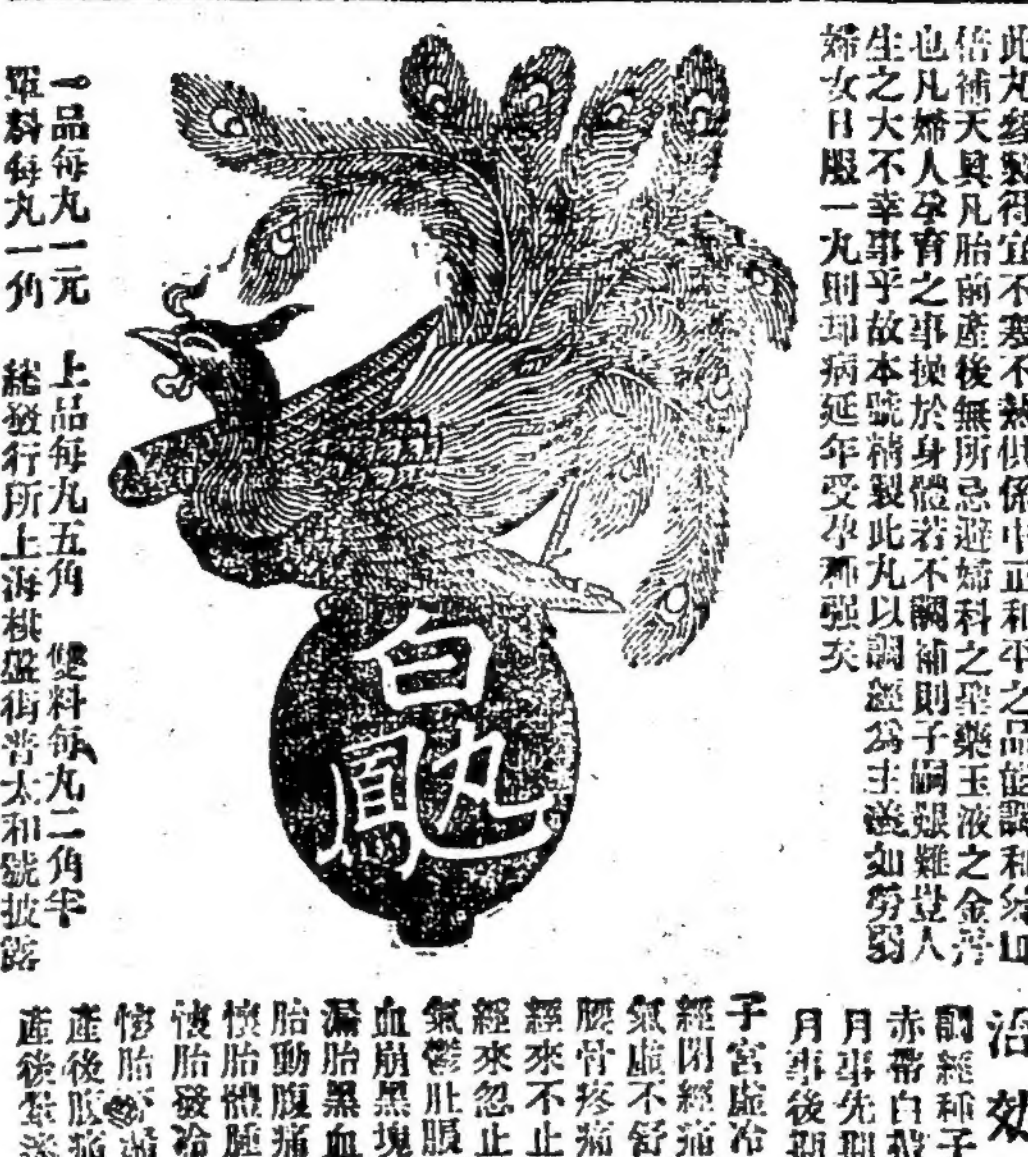 此丸修製得宜不寒不熱俱係中正和平之品能調和氣血
倍補天真凡胎前產後無所忌避婦科之聖藥玉液之金丹
也凡婦人孕育之事操於身體若不調補則子嗣艱難豈人
生之大不幸事乎故本號精製此丸以調經為主義如勞弱
婦女日服一丸則却病延年受孕種强矣
白
鳳丸
一品每丸一元 上品每丸五角 雙料每丸二角半
單料每丸一角 總發行所上海棋盤街普太和號披露
治效
調經種子
赤帶白
月事先期
月事後期
子宮虛冷
經閉經痛
氣虛不舒
腰骨疼痛
經來不止
經來忽止
氣鬱肚脹
血崩黑塊
漏胎黑血
胎動腹痛
懷胎體腫
懷胎發冷
懷胎
產後腹痛
產後